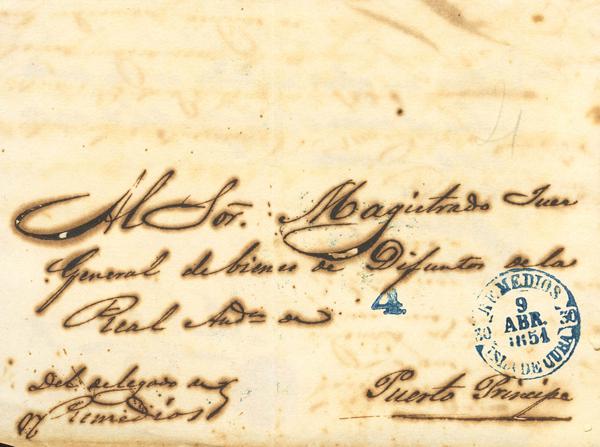 Al Sor. Magistrado Juez
General de bienes de Difuntos de la
Real Auda. de
4
REMEDIOS
9
ABR.
1851
30 30
ISLA DE CUBA
Del delegado de
Remedios
Puerto Principe